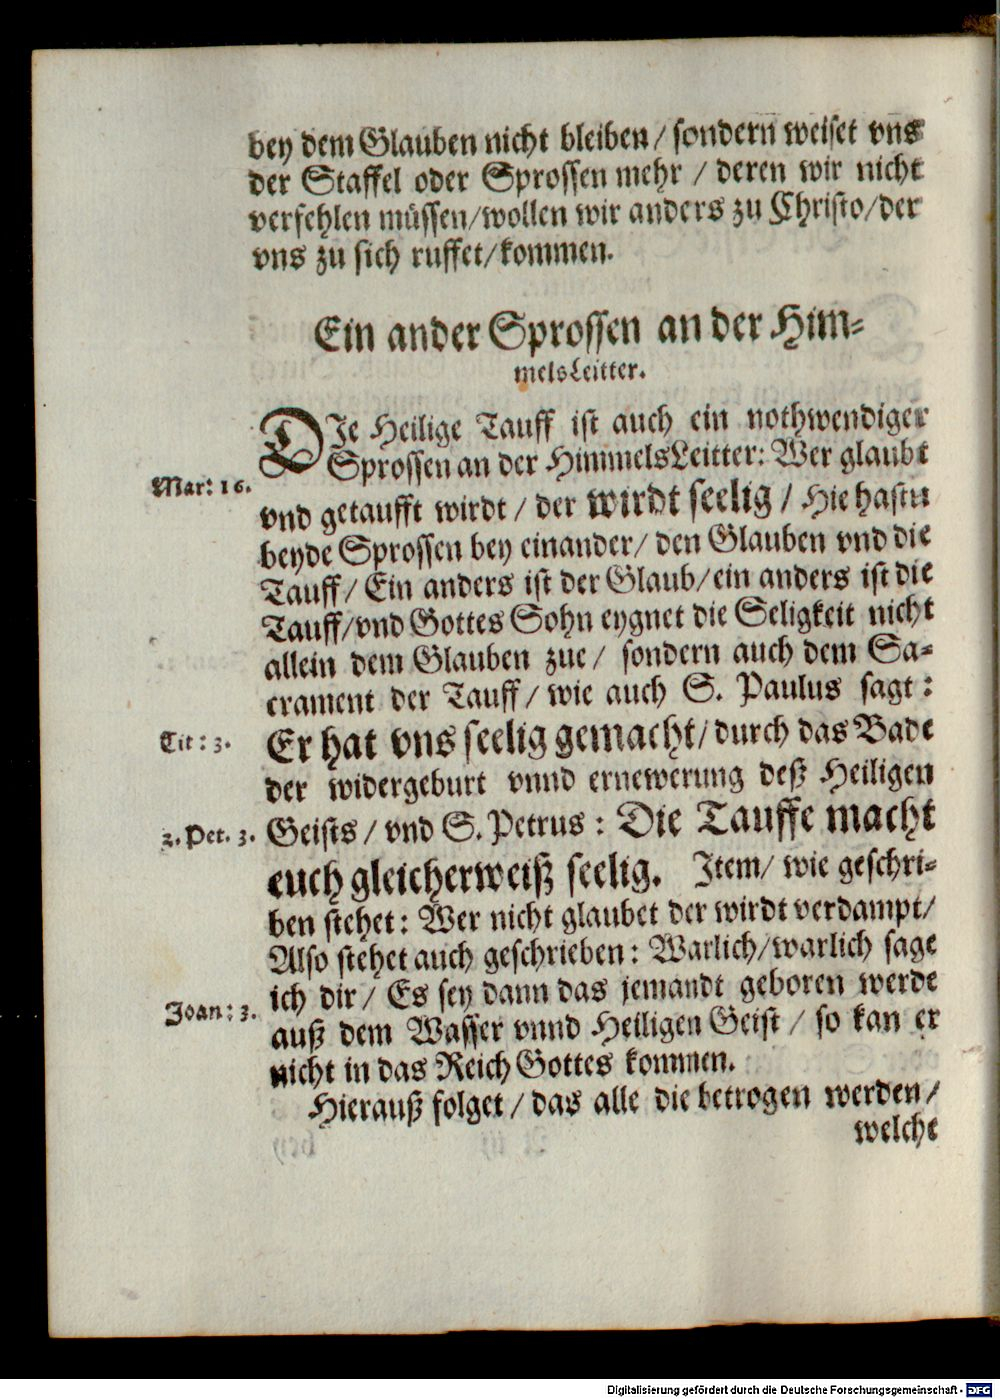 bey dem Glauben nicht bleiben / sondern weiset vns
der Staffel oder Sprossen mehr / deren wir nicht
verfehlen müssen/wollen wir anders zu Christo/der
vns zu sich ruffet/kommen.
Ein ander Sprossen an der Him-
melsLeitter.
DJe Heilige Tauff ist auch ein nothwendiger
Sprossen an der HimmelsLeitter: Wer glaubt
Mar: 16.
vnd getaufft wirdt / der wirdt seelig / Hie hastu
beyde Sprossen bey einander/ den Glauben vnd die
Tauff/ Ein anders ist der Glaub/ein anders ist die
Tauff/vnd Gottes Sohn eygnet die Seligkeit nicht
allein dem Glauben zue/ sondern auch dem Sa-
crament der Tauff/ wie auch S. Paulus sagt:
Tit: 3.
Er hat vns seelig gemacht/durch das Bade
der widergeburt vnnd ernewerung deß Heiligen
2. Pet. 3.
Geists / vnd S. Petrus: Die Tauffe macht
euch gleicherweiß seelig. Jtem/ wie geschri-
ben stehet: Wer nicht glaubet der wirdt verdampt/
Also stehet auch geschrieben: Warlich/warlich sage
Joan: 3.
ich dir/ Es sey dann das jemandt geboren werde
auß dem Wasser vnnd Heiligen Geist / so kan er
nicht in das Reich Gottes kommen.
Hierauß folget / das alle die betrogen werden/
welche
Digitalisierung gefördert durch die Deutsche Forschungsgemeinschaft - DFG